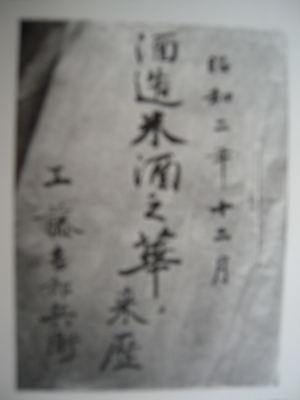 昭和二年十二月
酒造米酒之華来歴
工藤吉郎兵衛